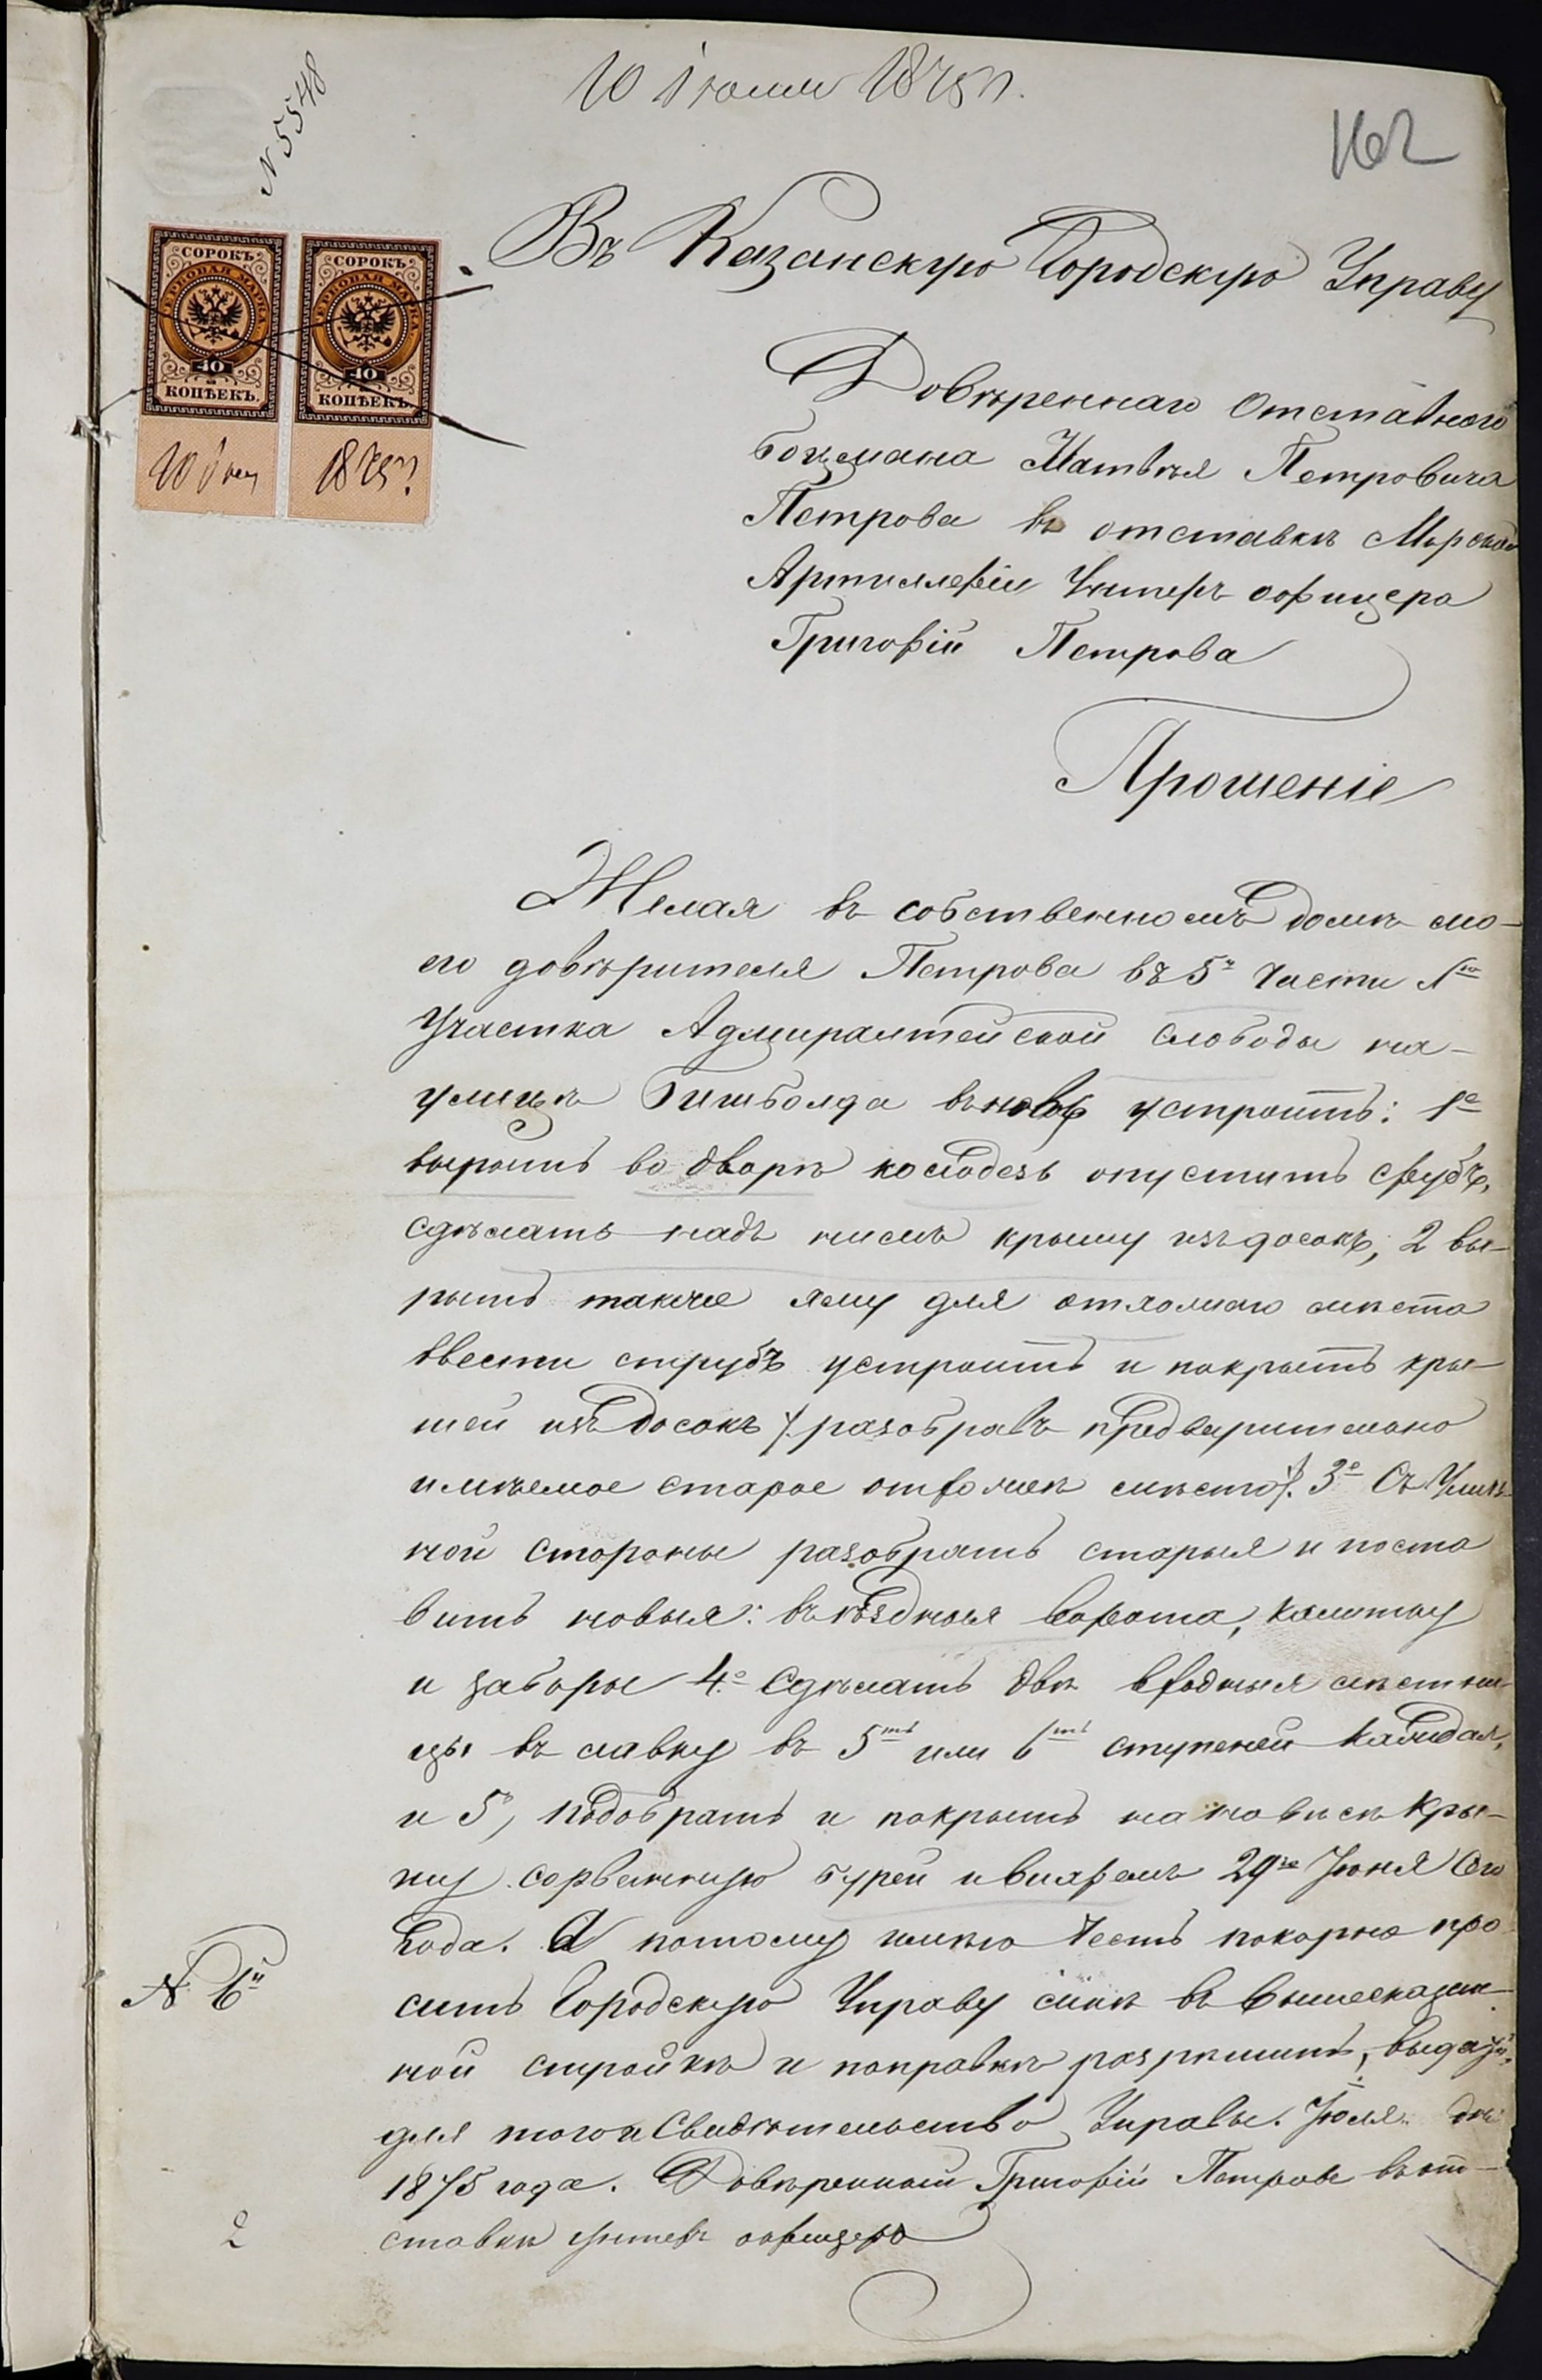 10 Іюля 1875 г.
N 5548
162
СОРОКЪ
ГЕРБОВАЯ МАРКА
40
КОПѢЕКЪ.
СОРОКЪ
ГЕРБОВАЯ МАРКА
40
КОПѢЕКЪ.
10 Іюля
1875 г.
Въ Казанскую Городскую Управу
Довѣреннаго Отставнаго
боцмана Матвѣя Петровича
Петрова въ отставкѣ Морской
Артиллеріи Унтеръ офицера
Григорій Петрова
Прошеніе
Желая въ собственномъ домѣ мо-
его довѣрителя Петрова въ 5й части 1го
Участка Адмиралтейской слободы на
улицѣ Бишболда вновь устроить: 1е
вырыть во дворѣ колодезь опустить срубъ,
сдѣлать надъ нимъ крышу изъ досокъ, 2 вы-
рыть также яму для отхожаго мѣста
ввести струбъ устроить и покрыть кры-
шей изъ досокъ /: разобравъ предварительно
имѣемое старое отхожее мѣсто :/. 3е Съ Улич-
ной стороны разобрать старыя и поста
вить новыя: въѣздныя ворота, калитку
и заборы 4е Сдѣлать двѣ входныя лѣстни-
цы въ лавку въ 5ть или 6ть ступеней каждая,
и 5, подобрать и покрыть на новѣсѣ кры-
шу сорванную бурей и вихремъ 29го Іюня сего
Года. А потому имѣю честь покорно про
сить Городскую Управу мнѣ въ вышесказан-
ной стройкѣ и поправкѣ разрѣшить, выдачу
для того и Свидѣтельство Управы. Іюля дня
1875 года. Довѣренный Григорій Петровъ въ от-
ставкѣ унтеръ офицеръ
N 6й
2